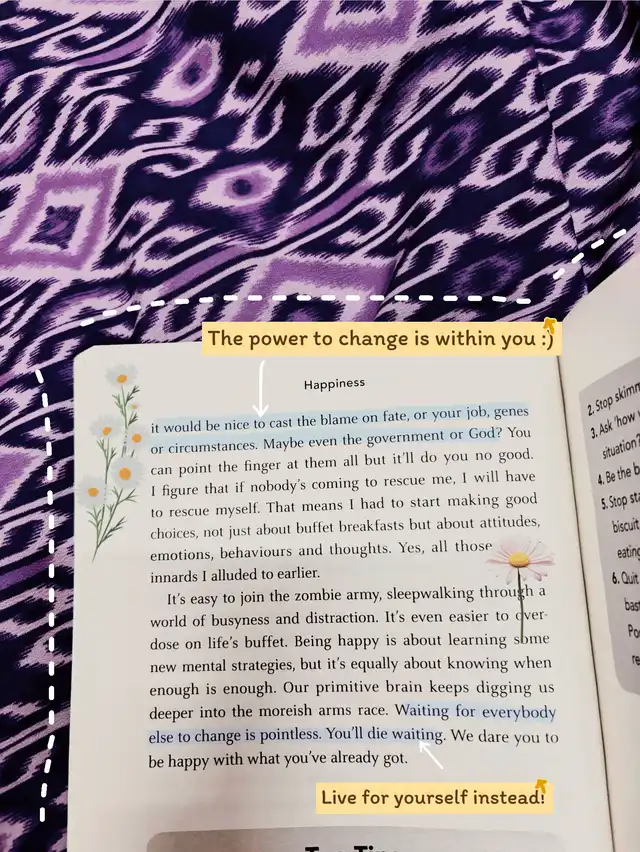 The power to change is within you :)
Happiness
it would be nice to cast the blame on fate, or your job, genes
or circumstances. Maybe even the government or God? You
can point the finger at them all but it'll do you no good.
I figure that if nobody's coming to rescue me, I will have
to rescue myself. That means I had to start making good
choices, not just about buffet breakfasts but about attitudes,
emotions, behaviours and thoughts. Yes, all those
innards I alluded to earlier.
It's easy to join the zombie army, sleepwalking through a
world of busyness and distraction. It's even easier to over-
dose on life's buffet. Being happy is about learning some
new mental strategies, but it's equally about knowing when
enough is enough. Our primitive brain keeps digging us
deeper into the moreish arms race. Waiting for everybody
else to change is pointless. You'll die waiting. We dare you to
be happy with what you've already got.
Live for yourself instead!
2. Stop skimm
3. Ask 'how
situation?
4. Be the b
5. Stop sta
biscuit
eating
6. Quit
bas
Po
re